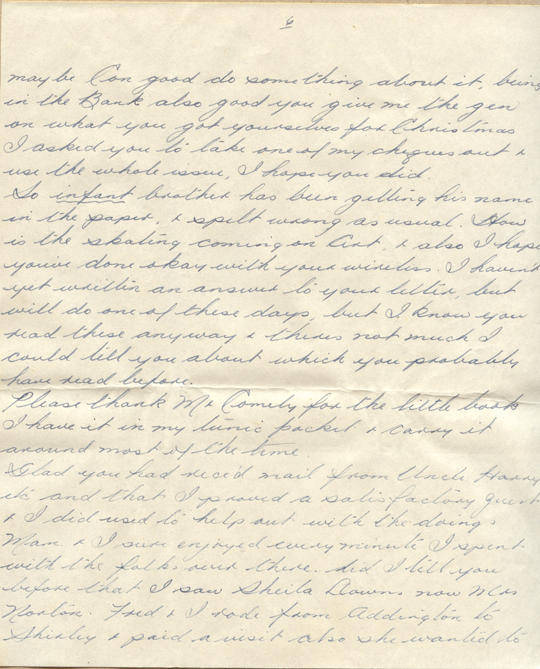 6
may be Con good do something about it, being
in the Bank also good you give me the gen
on what you got yourselves for Christmas
I asked you to take one of my cheques out &
use the whole issue, I hope you did.
So infant brother has been getting his name
in the paper, & spilt wrong as usual. How
is the skating coming on Art. & also I hope
you've done okay with your wireless. I haven't
yet written an answer to your letter, but
will do one of these days, but I know you
read these anyway & theres not much I
could tell you about which you probably
have read before.
Please thank Mr Comely for the little book
I have it in my tunic pocket & carry it
around most of the time.
Glad you had rec'd mail from Uncle Harry
etc and that I proved a satisfactory guest
& I did used to help out with the doings
Mam. & I sure enjoyed every minute I spent
with the folks over there. did I tell you
before that I saw Sheila Downs now Mrs
Norton. Fred & I rode from Addington to
Shirley & paid a visit also she wanted to